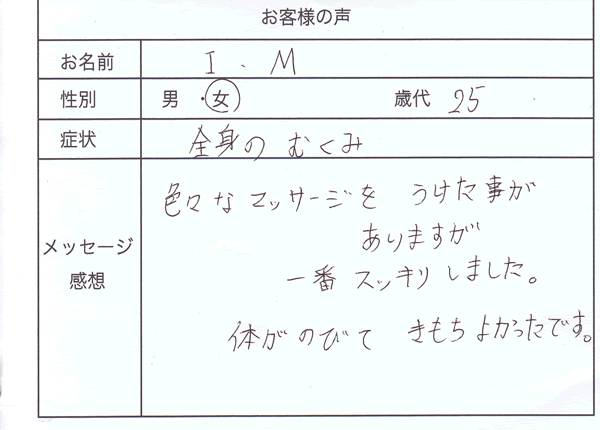 お客様の声
お名前 I . M
性別 男 ・ 女 歳代 25
症状 全身の むくみ
メッセージ
感想
色々な マッサージを うけた事が
ありますが
一番 スッキリ しました。
体が のびて きもち よかったです。